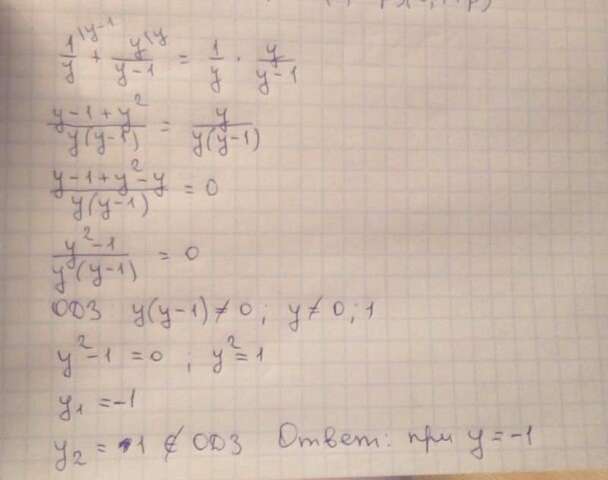 1/y \y-1 + y/(y-1) \y = 1/y · y/(y-1)
(y-1+y²)/(y(y-1)) = y/(y(y-1))
(y-1+y²-y)/(y(y-1)) = 0
(y²-1)/(y(y-1)) = 0
ОДЗ y(y-1)≠0; y≠0; 1
y²-1=0; y²=1
y₁=-1
y₂=1 ∉ ОДЗ Ответ: при y=-1